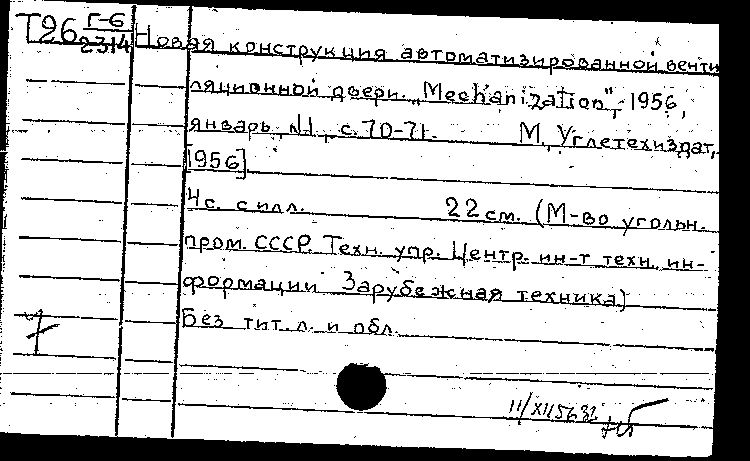 Т26 Г-6
2314
Новая конструкция автоматизированной венти
ляционной двери. „Mechanization", 1956,
январь, №1, с. 70-71. М, Углетехиздат,
[1956]
4 с. с илл. 22 см. (М-во угольн.
пром. СССР. Техн. упр. Центр. ин-т техн. ин-
формации Зарубежная техника)
Без тит. л. и обл.